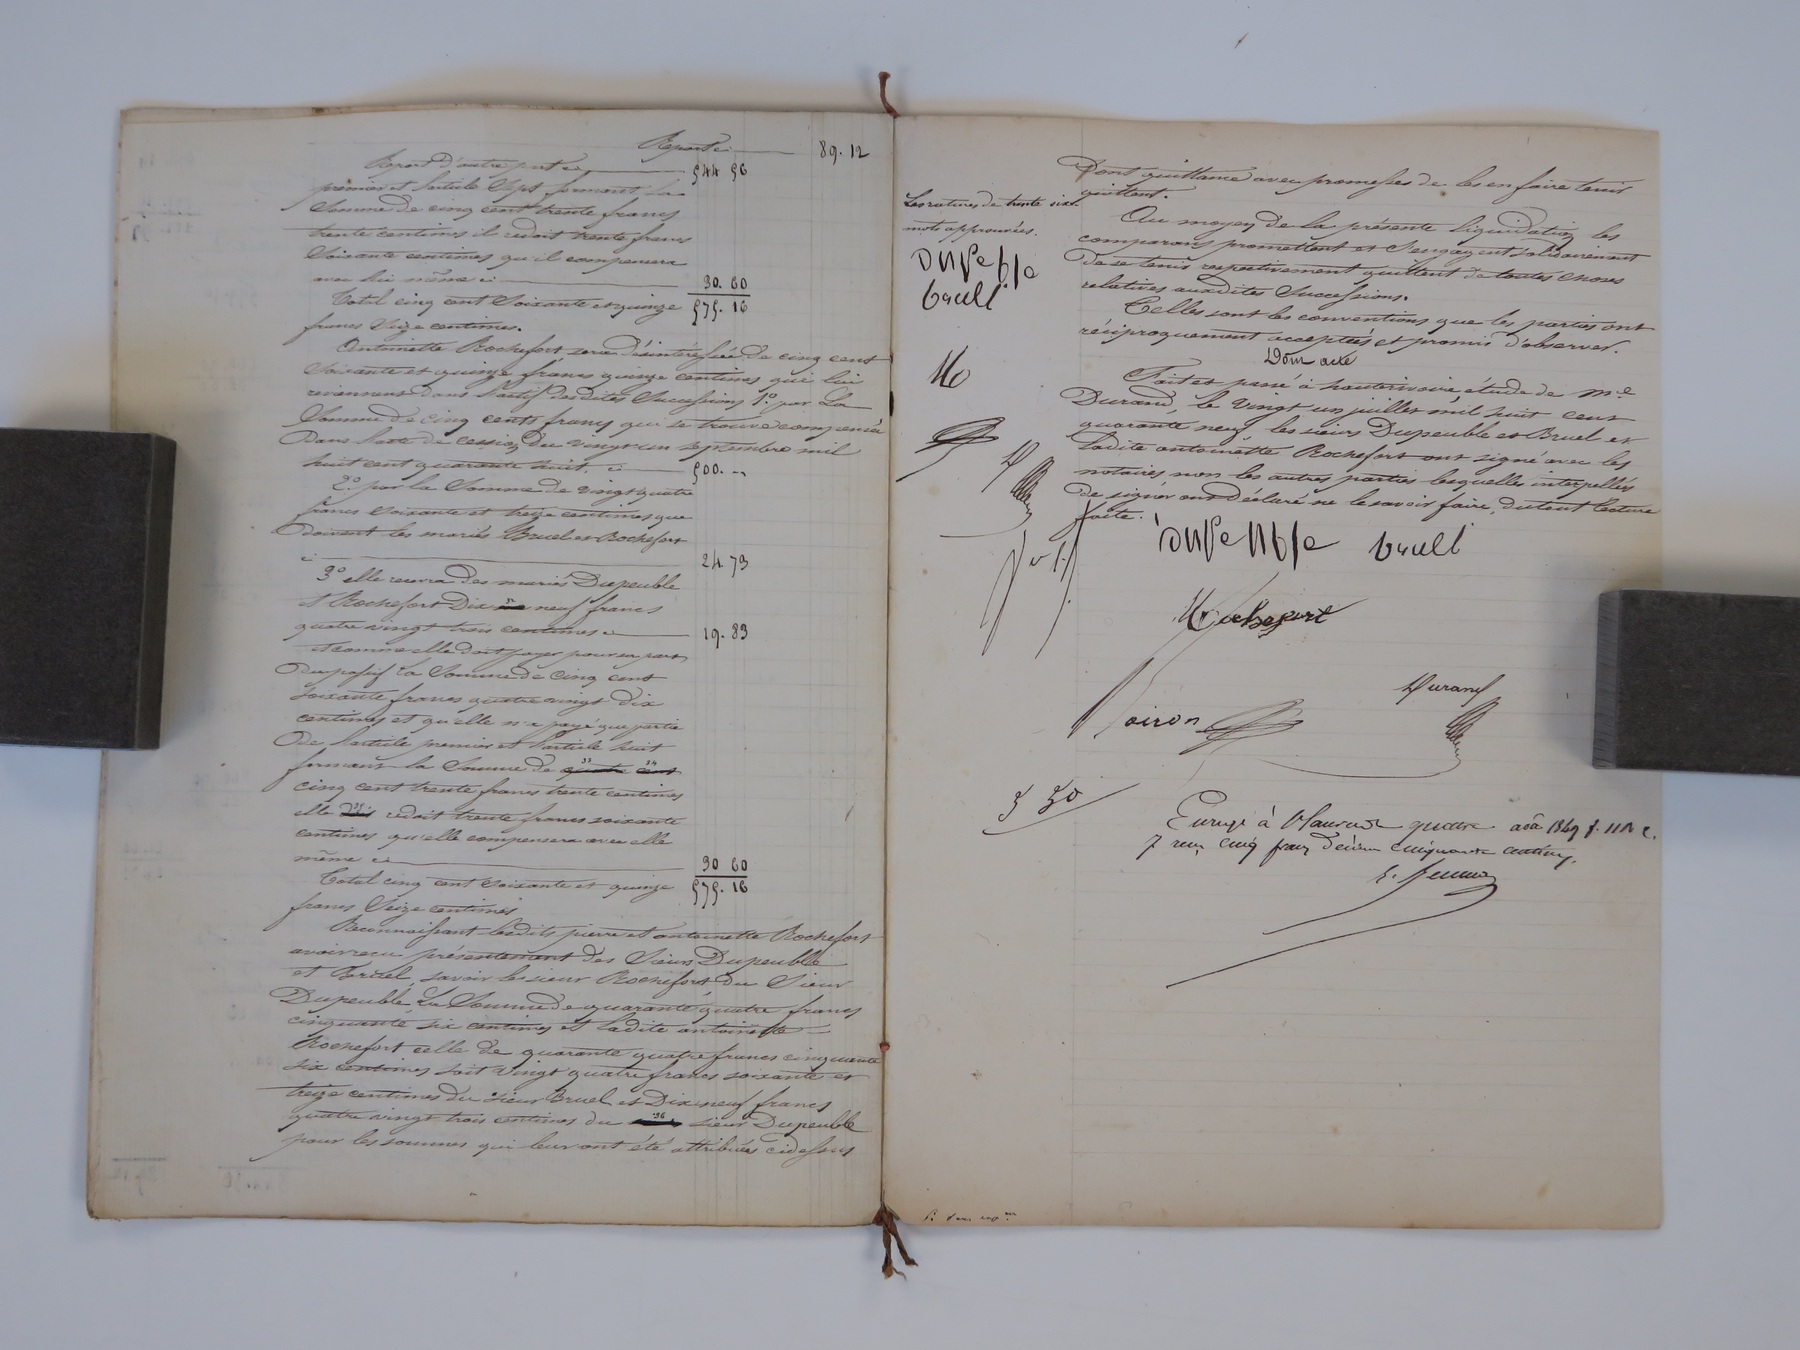 Report ci 89. 12
Report d'autre part ci 544 56
premier et l'article Sept formant la
Somme de cinq cent trente francs
trente centimes il redoit trente francs
Soixante centimes qu'il compensera
avec lui même ci 30. 60
Total cinq cent Soixante et quinze 575. 16
francs Seize centimes.
Antoinette Rochefort sera désintéressée de cinq cent
Soixante et quinze francs quinze centimes qui lui
reviennent dans l'actif desdites Successions 1.º par La
Somme de cinq cents francs qui se trouve compensée
Dans l'acte de cession du vingt un septembre mil
huit cent quarante huit, ci 500. --
2.º par la Somme de vingt quatre
francs soixante et treize centimes que
Doivent les mariés Bruel et Rochefort
ci 24. 73
3º elle recevra des mariés Dupeuble
et Rochefort Dix neuf francs
quatre vingt trois centimes ci 19. 83
et comme elle doit payer pour sa part
Du passif la Somme de Cinq cent
soixante francs quatre vingt dix
centimes et qu'elle n'a payé que partie
De l'article premier et l'article huit
formant la Somme de quatre cent
cinq cent trente francs trente centimes
elle redoit trente francs soixante
centimes qu'elle compensera avec elle
même ci 30 60
Total cinq cent Soixante et quinze 575. 16
francs Seize centimes
Reconnaissant lesdits pierre et antoinette Rochefort
avoir reçu présentement des Sieurs Dupeuble
et Bruel, savoir le sieur Rochefort, du Sieur
Dupeuble, La Somme de quarante quatre francs
cinquante six centimes et ladite antoinette
Rochefort celle de quarante quatre francs cinquante
six centimes soit vingt quatre francs soixante et
treize centimes du sieur Bruel et Dix neuf francs
quatre vingt trois centimes du sieur Dupeuble
pour les sommes qui leur ont été attribuées cidessus
Dont quittance avec promesses de les en faire tenir
quittent.
Au moyen de la présente liquidation les
comparans promettent et s'engagent solidairement
de se tenir respectivement quittent de toutes choses
relatives auxdites Successions.
Telles sont les conventions que les parties ont
réciproquement acceptées et promis d'observer.
Dont acte
Fait et passé à hauterivoire, étude de Me
Durand, le vingt un juillet mil huit cent
quarante neuf les sieurs Dupeuble et Bruel et
Ladite antoinette Rochefort ont signé avec les
notaires non les autres parties lesquelles interpellés
de signer ont Déclaré ne le savoir faire, dutout lecture
faite.
Les ratures de trente six
mots approuvées.
Dupeuble
bruell
Dupeuble bruell
Rochefort
Durand
Voiron
5 50
Enregé à St Laurent quatre août 1849 f. 118 c.
7 reçu cinq francs décime cinquante centimes.